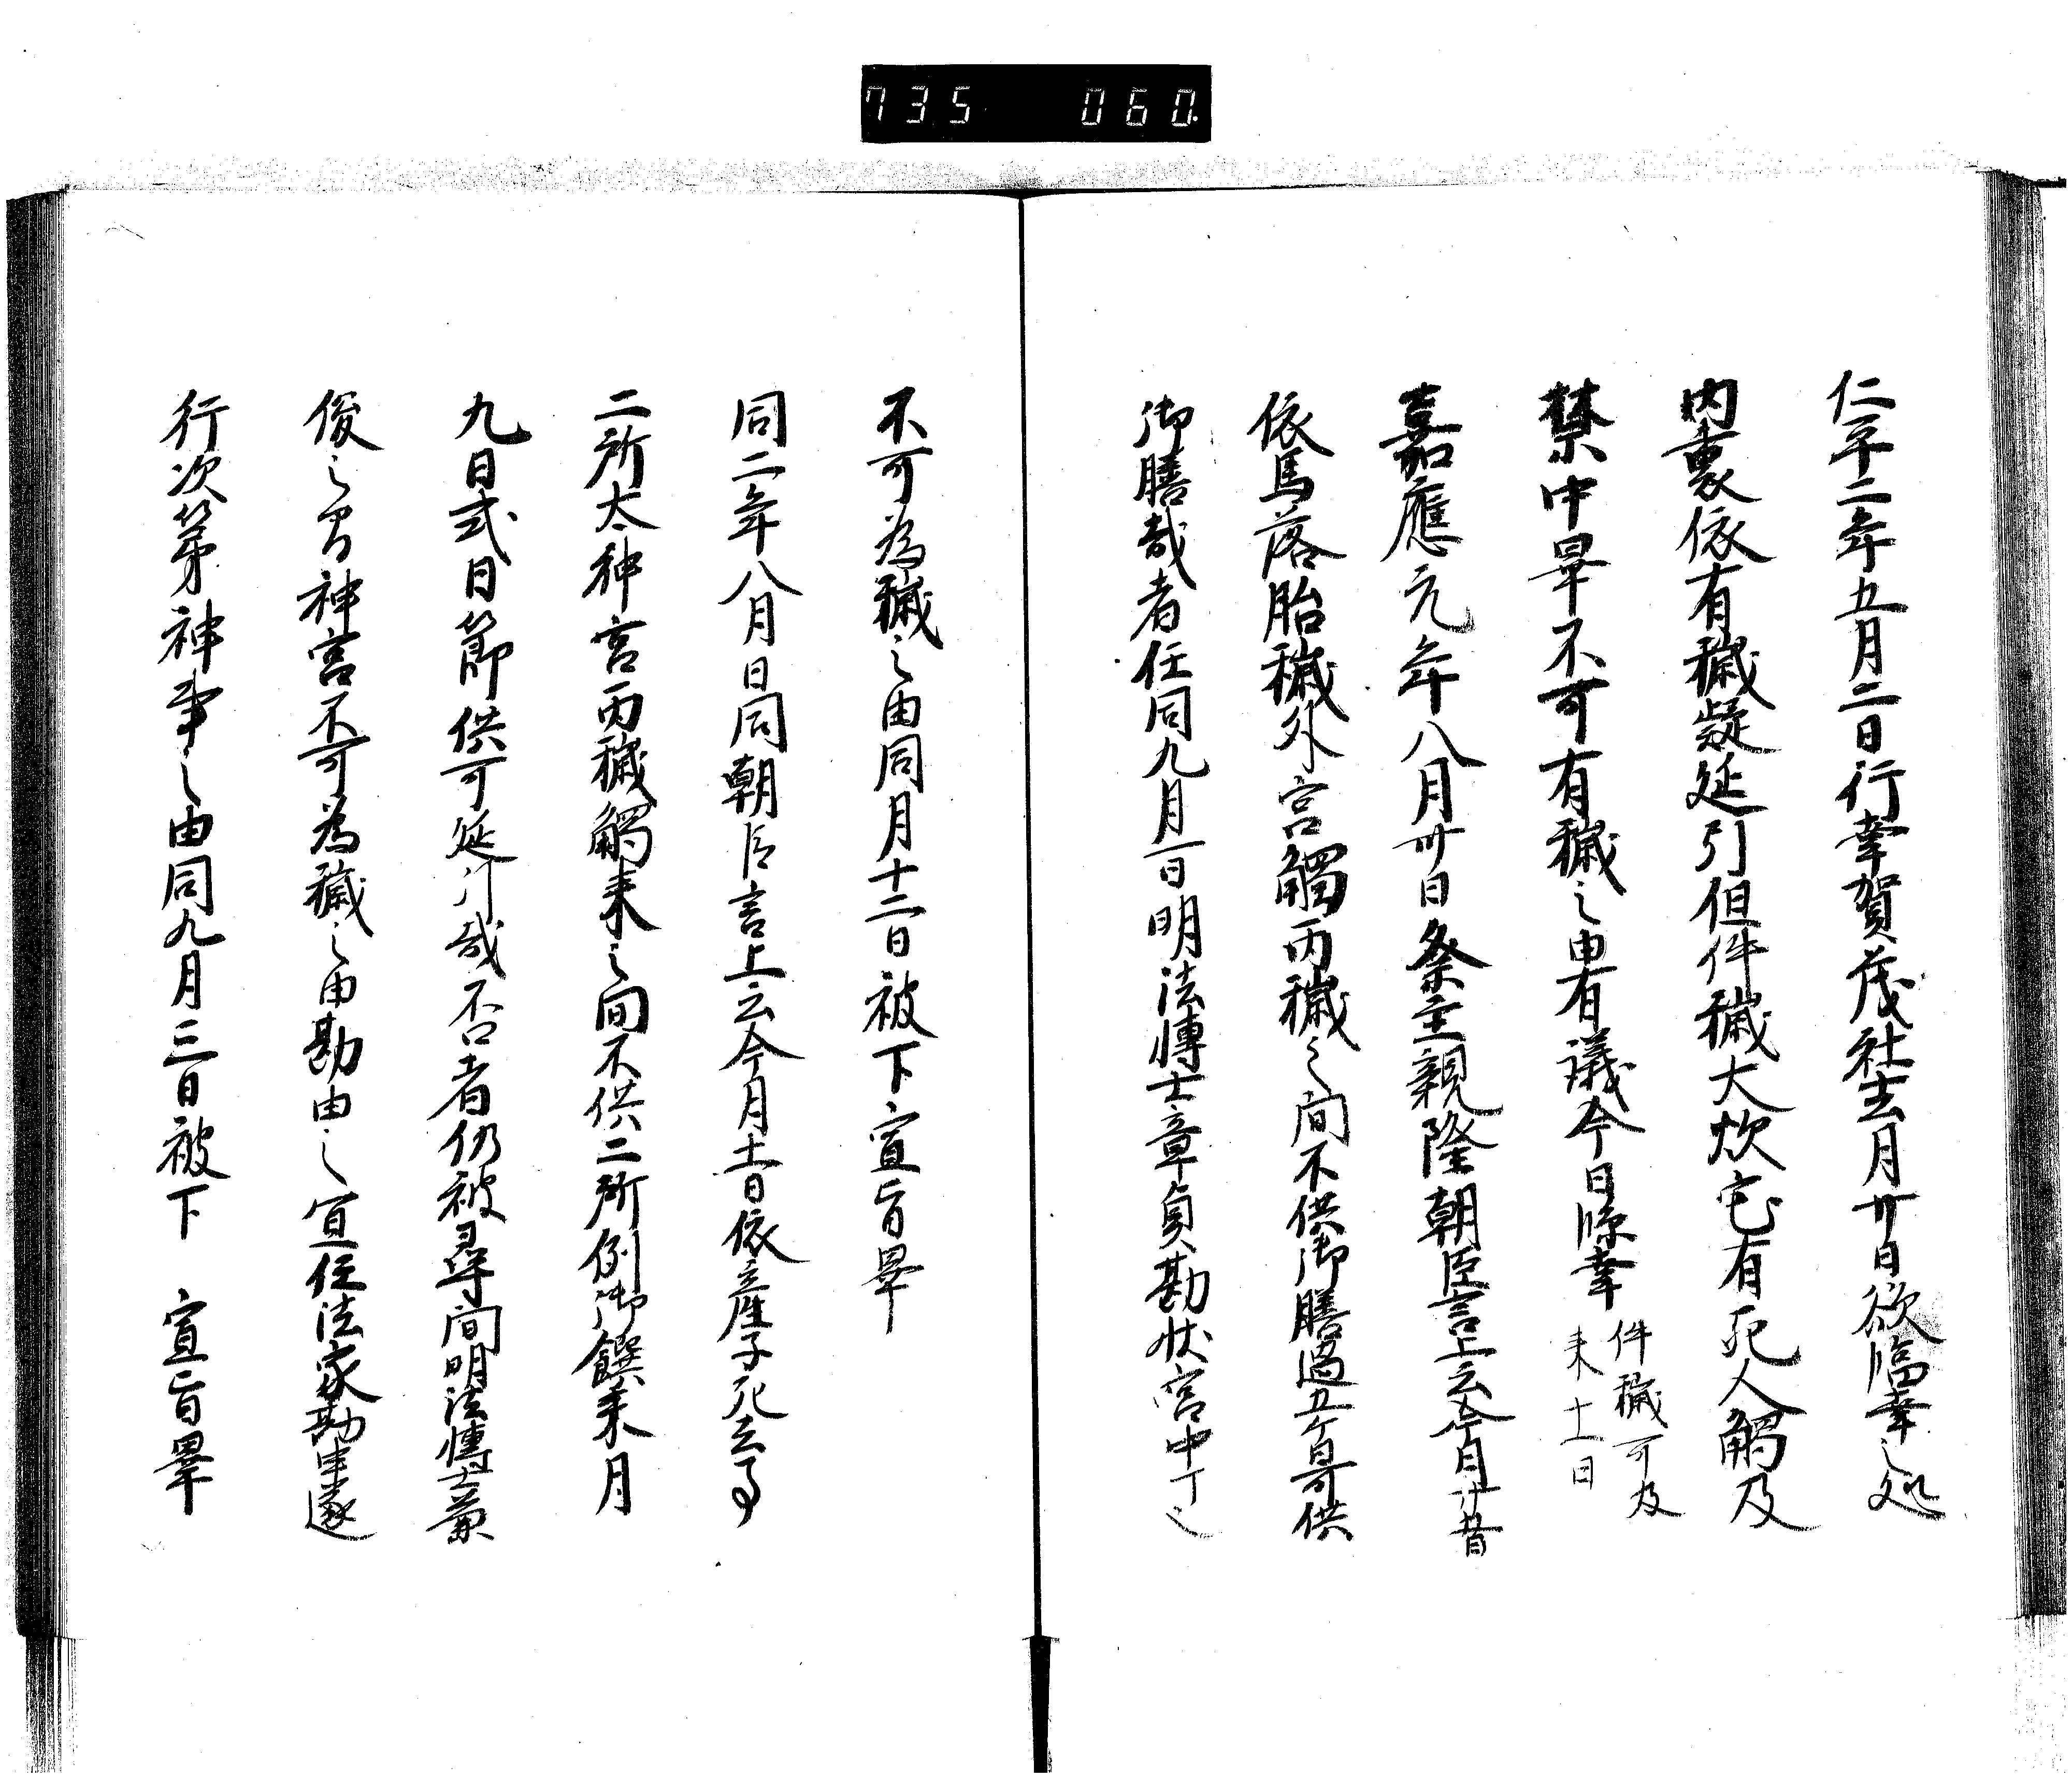 735 060
仁平二年五月二日行幸賀茂社去月廿日欲臨幸之処
内裏依有穢疑延引但件穢大炊宅有死人触及
禁中畢不可有穢之由有議今日臨幸 件穢可及
来十一日
嘉應元年八月廿日祭主親隆朝臣言上云今月
依馬落胎穢外宮觸丙穢之間不供御膳過五ケ日可供
御膳哉者任同九月一日明法博士章貞勘状宮中
不可為穢之由同月十二日被下宣旨畢
同二年八月日同朝臣言上云今月十一日依産子死去事
二所太神宮丙穢觸来之間不供二所例御饌来月
九日式日節供可延引哉否者仍被尋問明法博士兼
俊之処神宮不可為穢之由勘申之宣任法家勘申遂
行次第神事之由同九月三日被下 宣旨畢